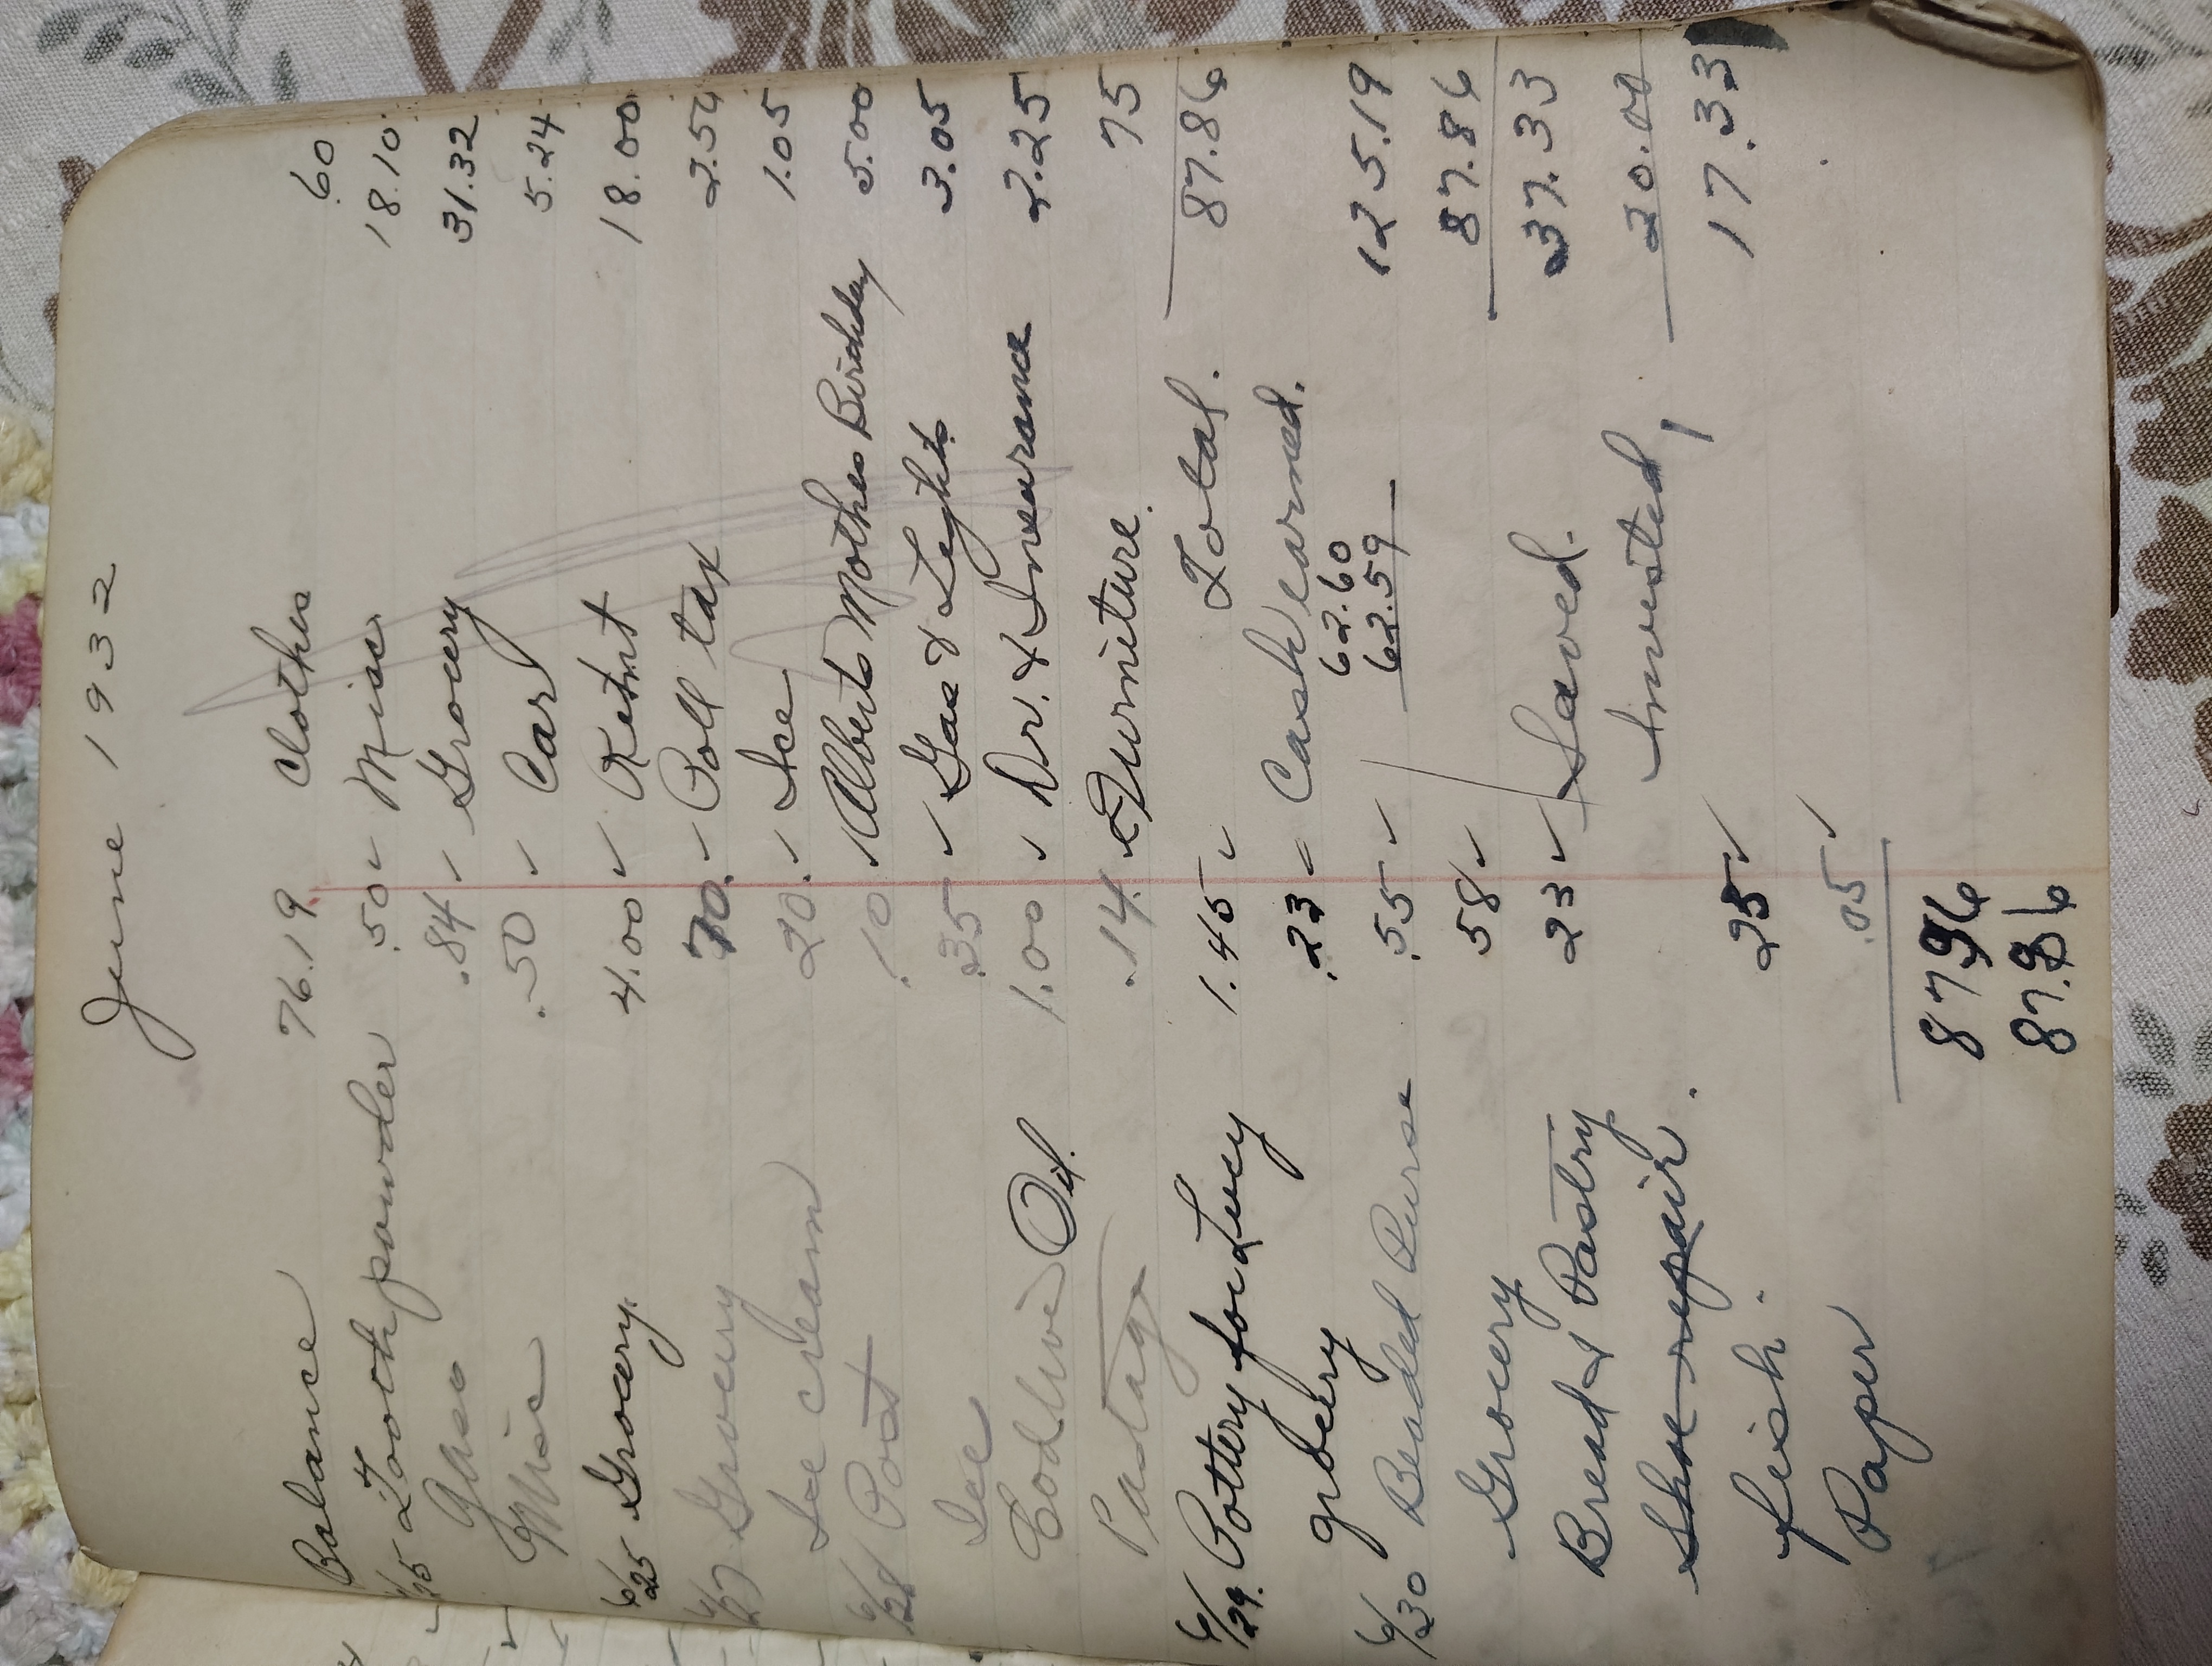 June 1932
Balance 76.19
6/25 Tooth powder .50 ✓
Gas .84 ✓
Misc .50 ✓
6/25 Grocery. 4.00 ✓
6/27 Grocery 70. ✓
Ice cream 20. ✓
6/28 Post .10
Ice .35 ✓
Oil. 1.00 ✓
Postage .14
6/29. Pottery for Lucy 1.45 ✓
grocery .23
6/30 Beaded Purse .55 ✓
Grocery 58 ✓
Bread & Pastry 23 ✓
Shoe repair.
fish. 25 ✓
Paper .05 ✓
87.96
87.86
Clothes .60
Misc 18.10
Grocery 31.32
Car 5.24
Retnt 18.00
Poll tax 2.50
Ice 1.05
Alberts Mothes Birthday 5.00
Gas & Light 3.05
Dr. & Insurance 2.25
Furniture. 75
Total. 87.86
Cash earned.
62.60
62.59
125.19
87.86
Saved. 37.33
Invested 20.00
17.33